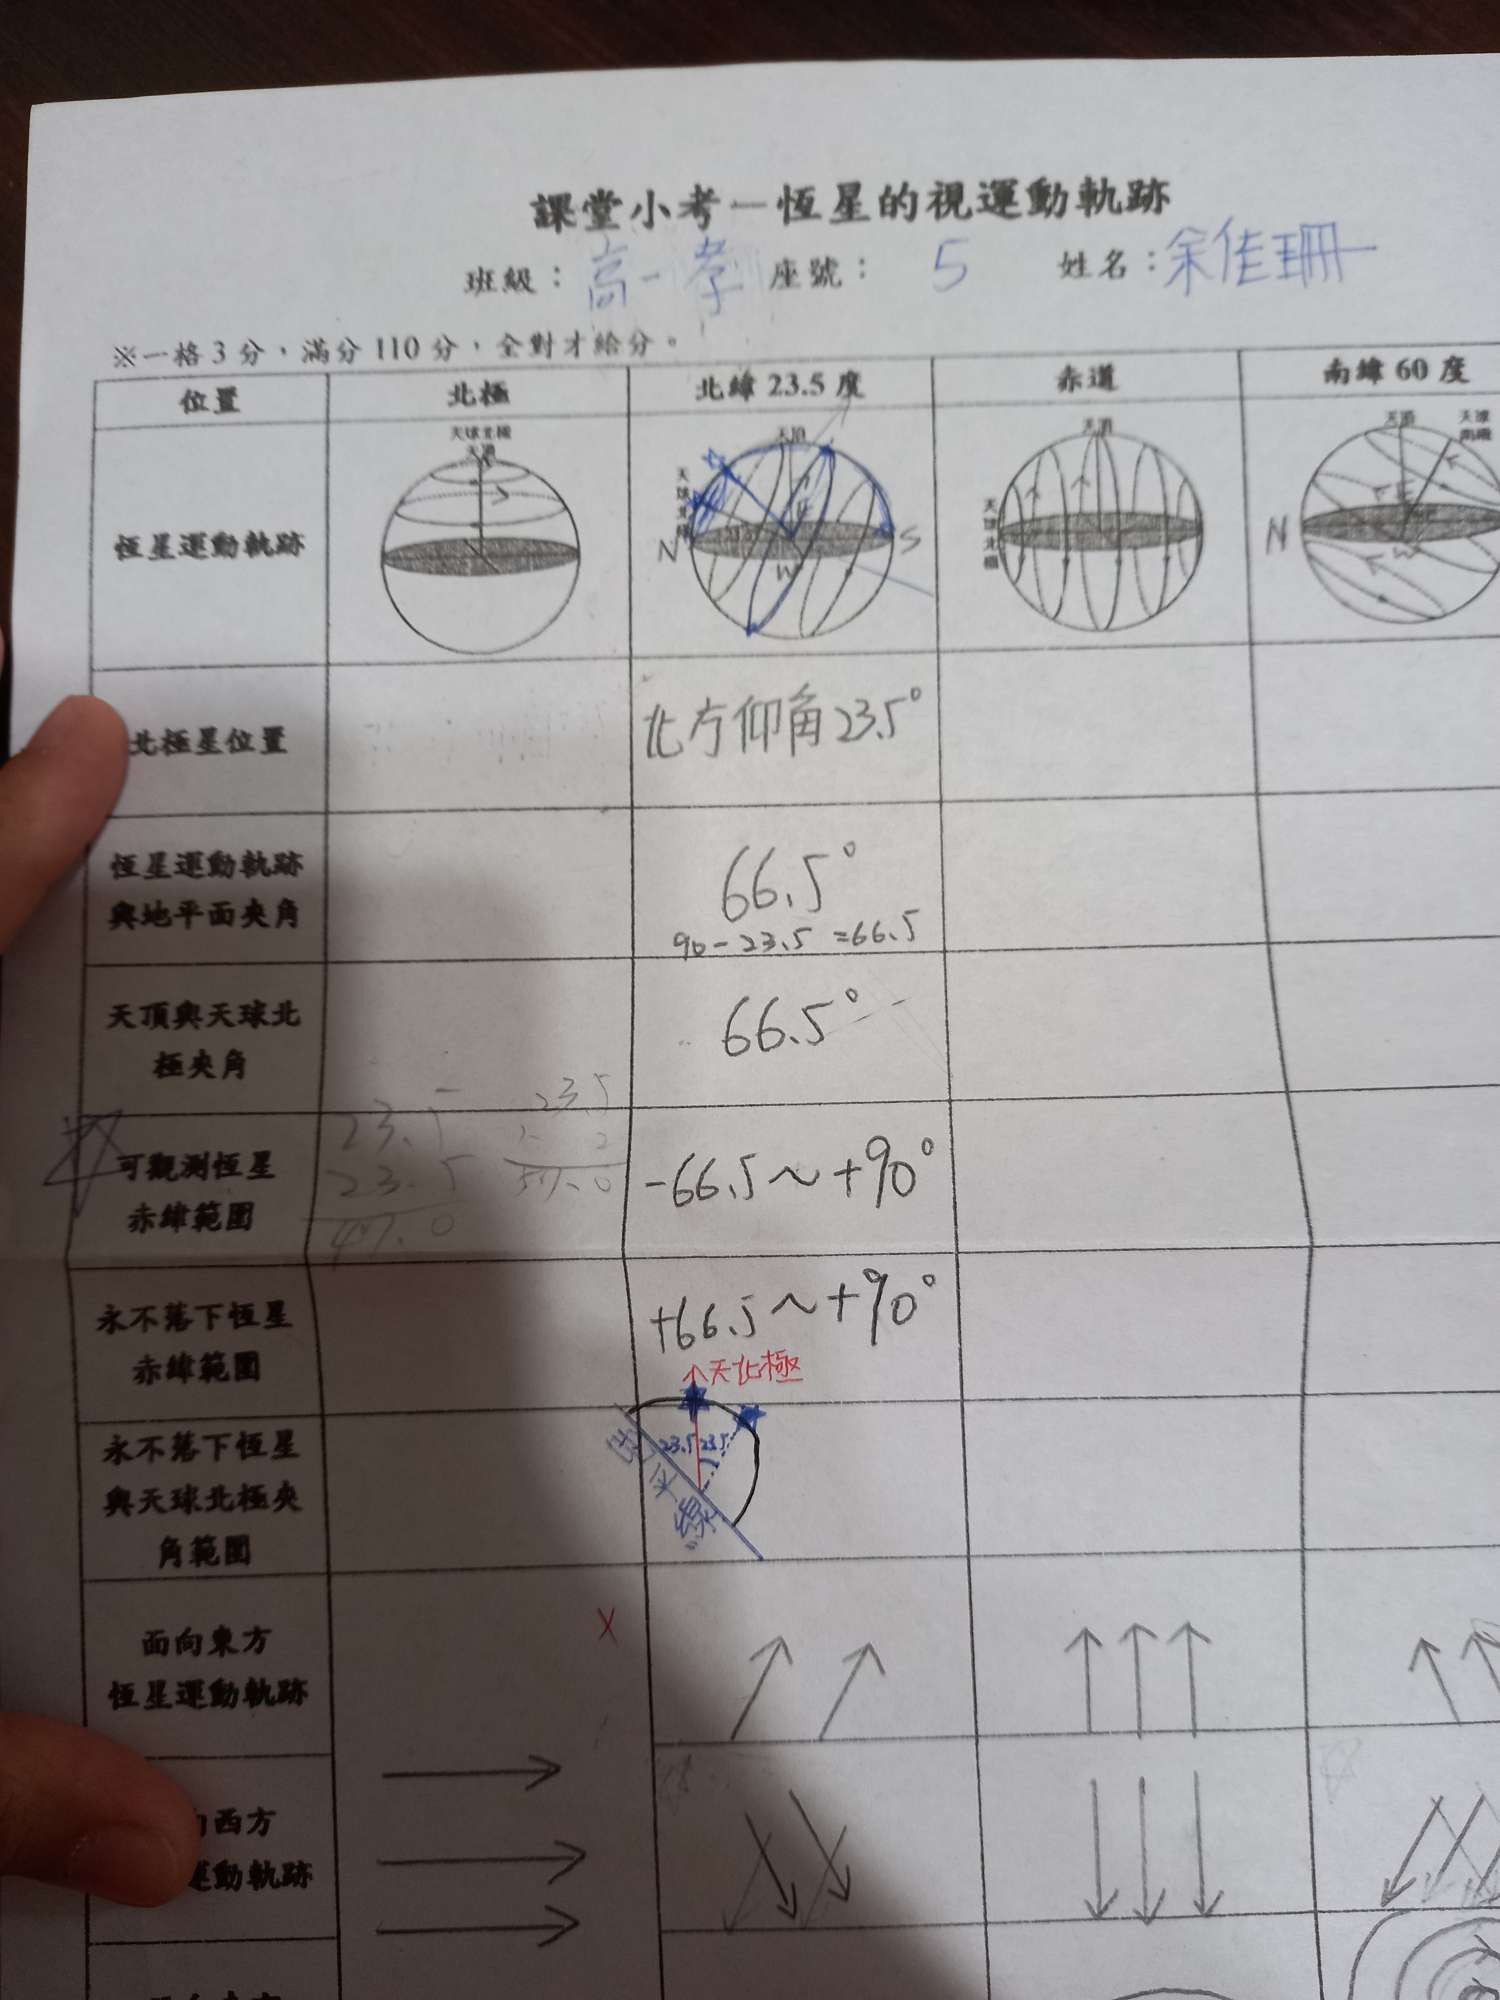 課堂小考－恆星的視運動軌跡
班級：高一孝 座號：5 姓名：余佳珊
※一格3分，滿分110分，全對才給分。
位置 北極 北緯 23.5 度 赤道 南緯 60 度
恆星運動軌跡
天球北極
天頂
天頂
天球北極
N
S
W
E
天頂
天球北極
天頂
天球南極
N
E
W
北極星位置 北方仰角23.5°
恆星運動軌跡
與地平面夾角
66.5°
90-23.5=66.5
天頂與天球北
極夾角
66.5°
可觀測恆星
赤緯範圍
23.5
23.5
47.0
23.5
2
-66.5～+90°
永不落下恆星
赤緯範圍
+66.5～+90°
↑天北極
永不落下恆星
與天球北極夾
角範圍
23.5 23.5
地平線
面向東方
恆星運動軌跡
X
向西方
運動軌跡